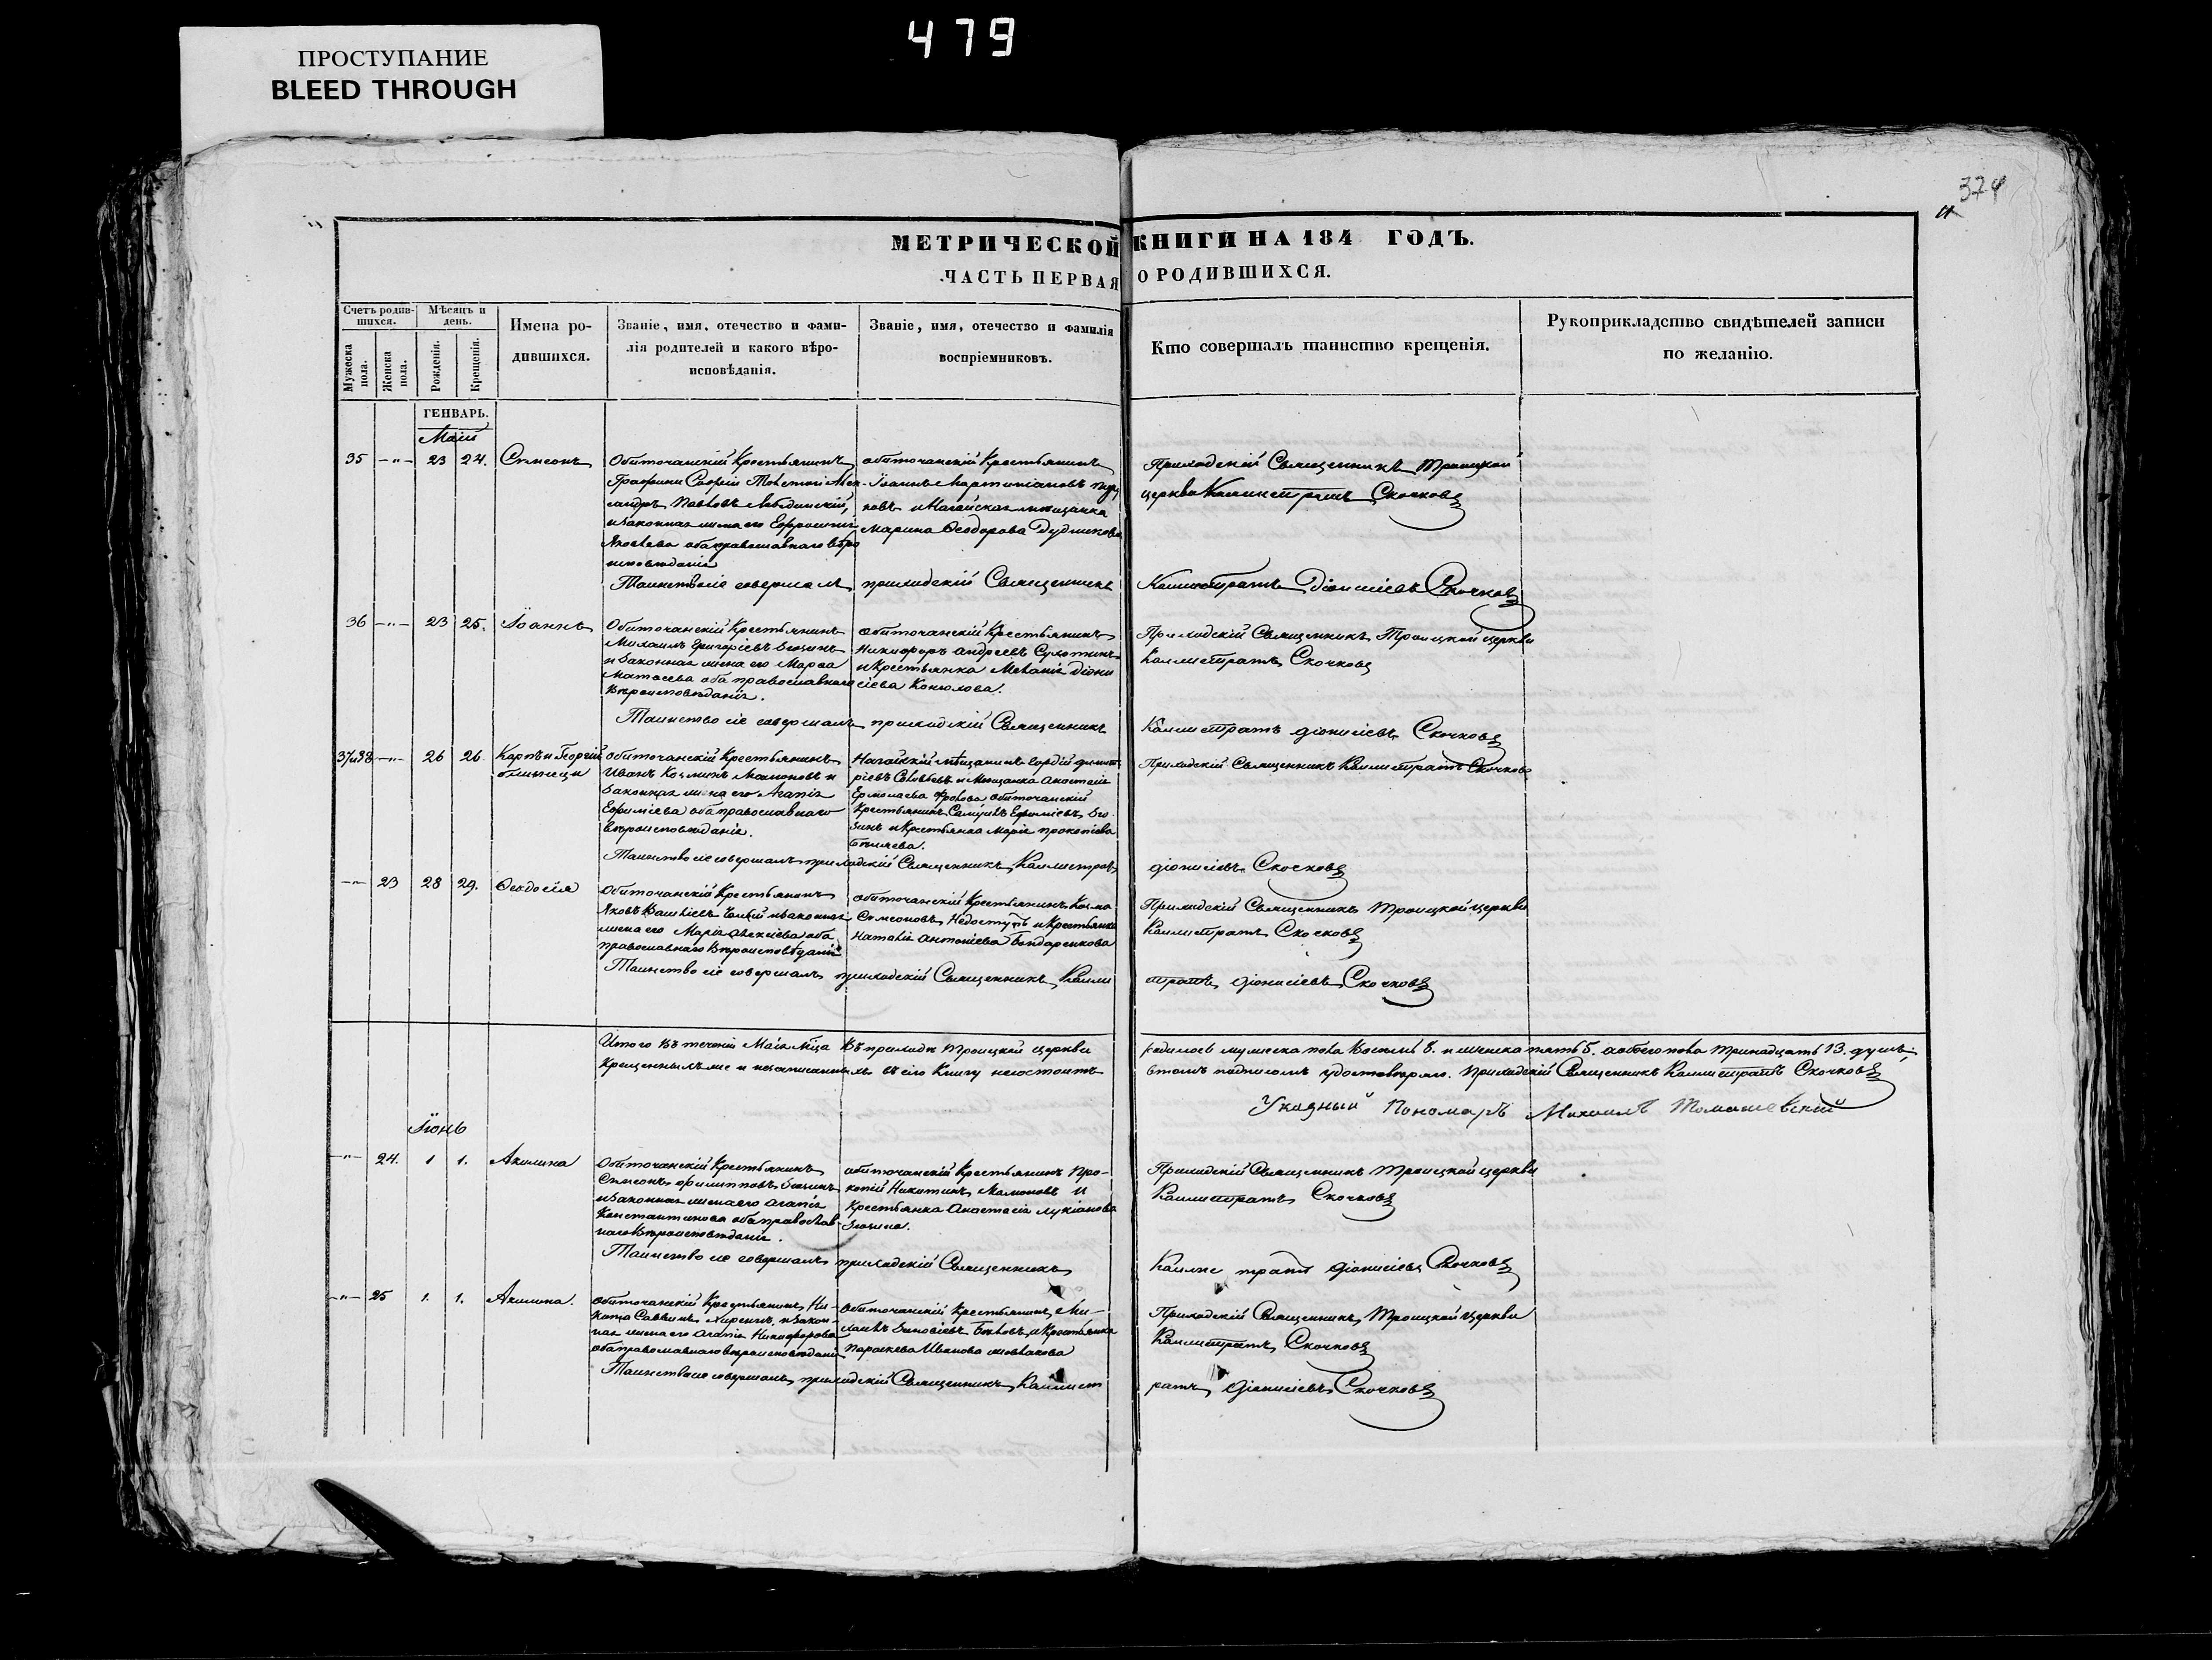 ПРОСТУПАНИЕ
BLEED THROUGH
479
374
МЕТРИЧЕСКОЙ КНИГИ НА 184 ГОДЪ.
ЧАСТЬ ПЕРВАЯ О РОДИВШИХСЯ.
Счетъ родившихся.
Мужеска пола.
Женска пола.
Мѣсяцъ и день.
Рожденія.
Крещенія.
Имена родившихся.
Званіе, имя, отечество и фамилія родителей и какого вѣроисповѣданія.
Званіе, имя, отечество и фамилія воспріемниковъ.
Кто совершалъ таинство крещенія.
Рукоприкладство свидѣтелей записи по желанію.
ГЕНВАРЬ.
Маій
35 -"- 23 24. Сѵмеонъ
Обиточанскій Крестьянинъ
Павловъ
и законная жена его
Яковлева оба православнаго вѣро
исповѣданія
обиточанскій Крестьянинъ
Іоаннъ
и Нагайская мѣщанка
Марина Ѳеодорова Дудникова
Приходскій Священникъ Троицкой
церкви Каллистратъ Скочковъ
Таинство сіе совершалъ приходскій Священникъ Каллистратъ Діонисіевъ Скочковъ
36 -"- 23 25. Іоаннъ
Обиточанскій Крестьянинъ
Михаилъ Григоріевъ
и законная жена его Марѳа
Матѳеева оба православнаго
Вѣроисповѣданія.
обиточанскій Крестьянинъ
Никифоръ Андреевъ
и Крестьянка Меланія Діони
сіева
Приходскій Священникъ Троицкой церкви
Каллистратъ Скочковъ
Таинство сіе совершалъ приходскій Священникъ Каллистратъ Діонисіевъ Скочковъ
37и38 -"- 26 26 Карпъ и Георгій
близнецы
обиточанскій Крестьянинъ
Иванъ Козминъ Мамоновъ и
законная жена его Агапія
Ефиміева оба православнаго
вѣроисповѣданія.
Нагайскій мѣщанинъ Гордій Димит
ріевъ Соловьевъ и Мѣщанка Анастасія
Ермолаева Фролова обиточанскій
Крестьянинъ Ефиміевъ
и Крестьянка Марія Прокопіева
Бѣляева.
Приходскій Священникъ Каллистратъ Скочковъ
Таинство сіе совершалъ приходскій Священникъ Каллистратъ Діонисіевъ Скочковъ
-"- 23 28 29. Ѳеодосія
Обиточанскій Крестьянинъ
Яковъ и законная
жена его Марія Алексіева оба
православнаго Вѣроисповѣданія
обиточанскій Крестьянинъ Козма
Сѵмеоновъ и Крестьянка
Наталія Антоніева Бондаренкова
Приходскій Священникъ Троицкой церкви
Каллистратъ Скочковъ
Таинство сіе совершалъ приходскій Священникъ Калли стратъ Діонисіевъ Скочковъ
Итого Въ теченіи Маія Мѣца Въ приходѣ Троицкой церкви родилось мужеска пола Восемь 8. и женска пять 5. а обоего пола тринадцать 13. душъ;
Крещенныхъ же и незаписанныхъ въ сію Книгу не состоитъ в томъ подписомъ удостовѣряю. Приходскій Священникъ Каллистратъ Скочковъ
Указный Пономарь Михаилъ Томашевскій
Іюнь
-"- 24. 1 1. Акилина
Обиточанскій Крестьянинъ
Сѵмеонъ Филипповъ
и законная жена его Агапія
Константинова оба православ
наго Вѣроисповѣданія.
обиточанскій Крестьянинъ Про-
копій Никитинъ Мамоновъ и
Крестьянка Анастасія Лукіанова
Приходскій Священникъ Троицкой церкви
Каллистратъ Скочковъ
Таинство сіе совершалъ приходскій Священникъ Каллистратъ Діонисіевъ Скочковъ
-"- 25 1. 1. Акилина.
обиточанскій Крестьянинъ Ни-
кита Саввинъ и закон-
ная жена его Агапія Никифорова
оба православнаго вѣроисповѣданія
обиточанскій Крестьянинъ Ми-
хаилъ Зиновіевъ и Крестьянка
Параскева Иванова
Приходскій Священникъ Троицкой церкви
Каллистратъ Скочковъ
Таинство сіе совершалъ приходскій Священникъ Каллист ратъ Діонисіевъ Скочковъ